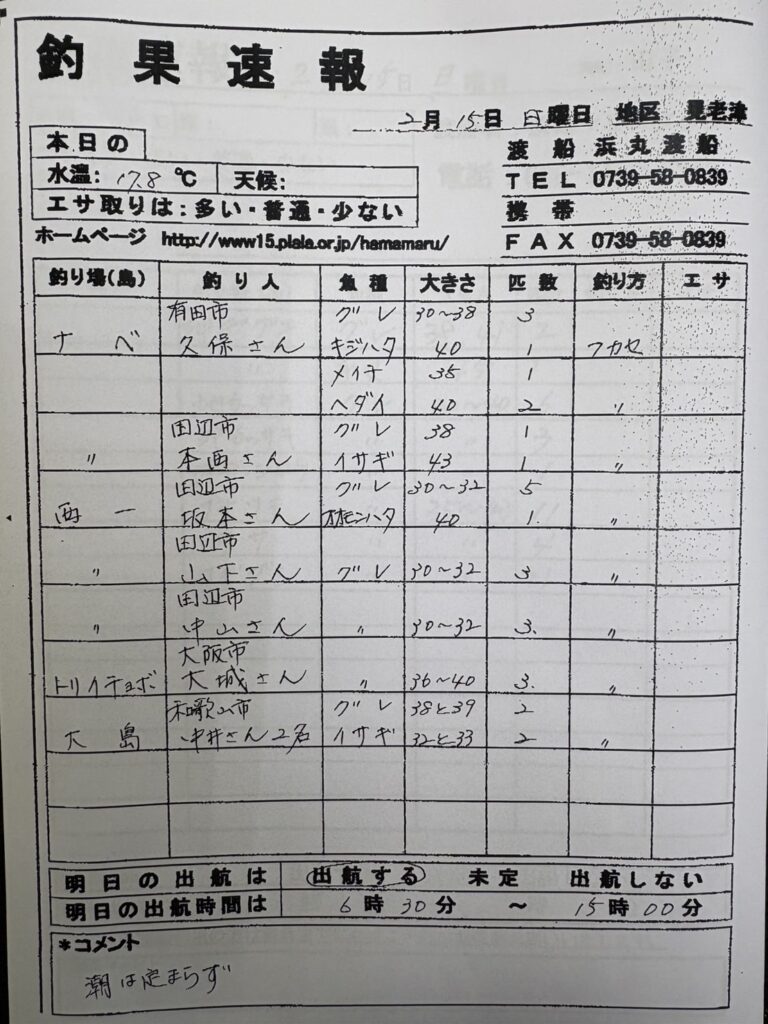 釣果速報
2月15日 日曜日 地区 見老津
本日の
水温: 17.8 ℃ 天候:
エサ取りは:多い・普通・少ない
渡船 浜丸渡船
TEL 0739-58-0839
携帯
FAX 0739-58-0839
ホームページ http://www15.plala.or.jp/hamamaru/
釣り場(島) 釣り人 魚種 大きさ 匹数 釣り方 エサ
有田市 グレ 30〜38 3
ナベ 久保さん キジハタ 40 1 フカセ
メイチ 35 1
ヘダイ 40 2 〃
田辺市 グレ 38 1
〃 本西さん イサギ 43 1 〃
田辺市 グレ 30〜32 5
西一 坂本さん オオモンハタ 40 1. 〃
田辺市
〃 山下さん グレ 30〜32 3 〃
田辺市
〃 中山さん 〃 30〜32 3. 〃
大阪市
トリイチョボ 大城さん 〃 36〜40 3. 〃
和歌山市 グレ 38と39 2
大島 中井さん2名 イサギ 32と33 2 〃
明日の出航は 出航する 未定 出航しない
明日の出航時間は 6時30分 〜 15時00分
*コメント
潮は定まらず